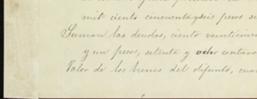 mil ciento cincuentayseis pesos se
Suman las deudas, ciento veinticinco
y un peso, setenta y ocho centavos
Valor de los bienes del difunto, cua